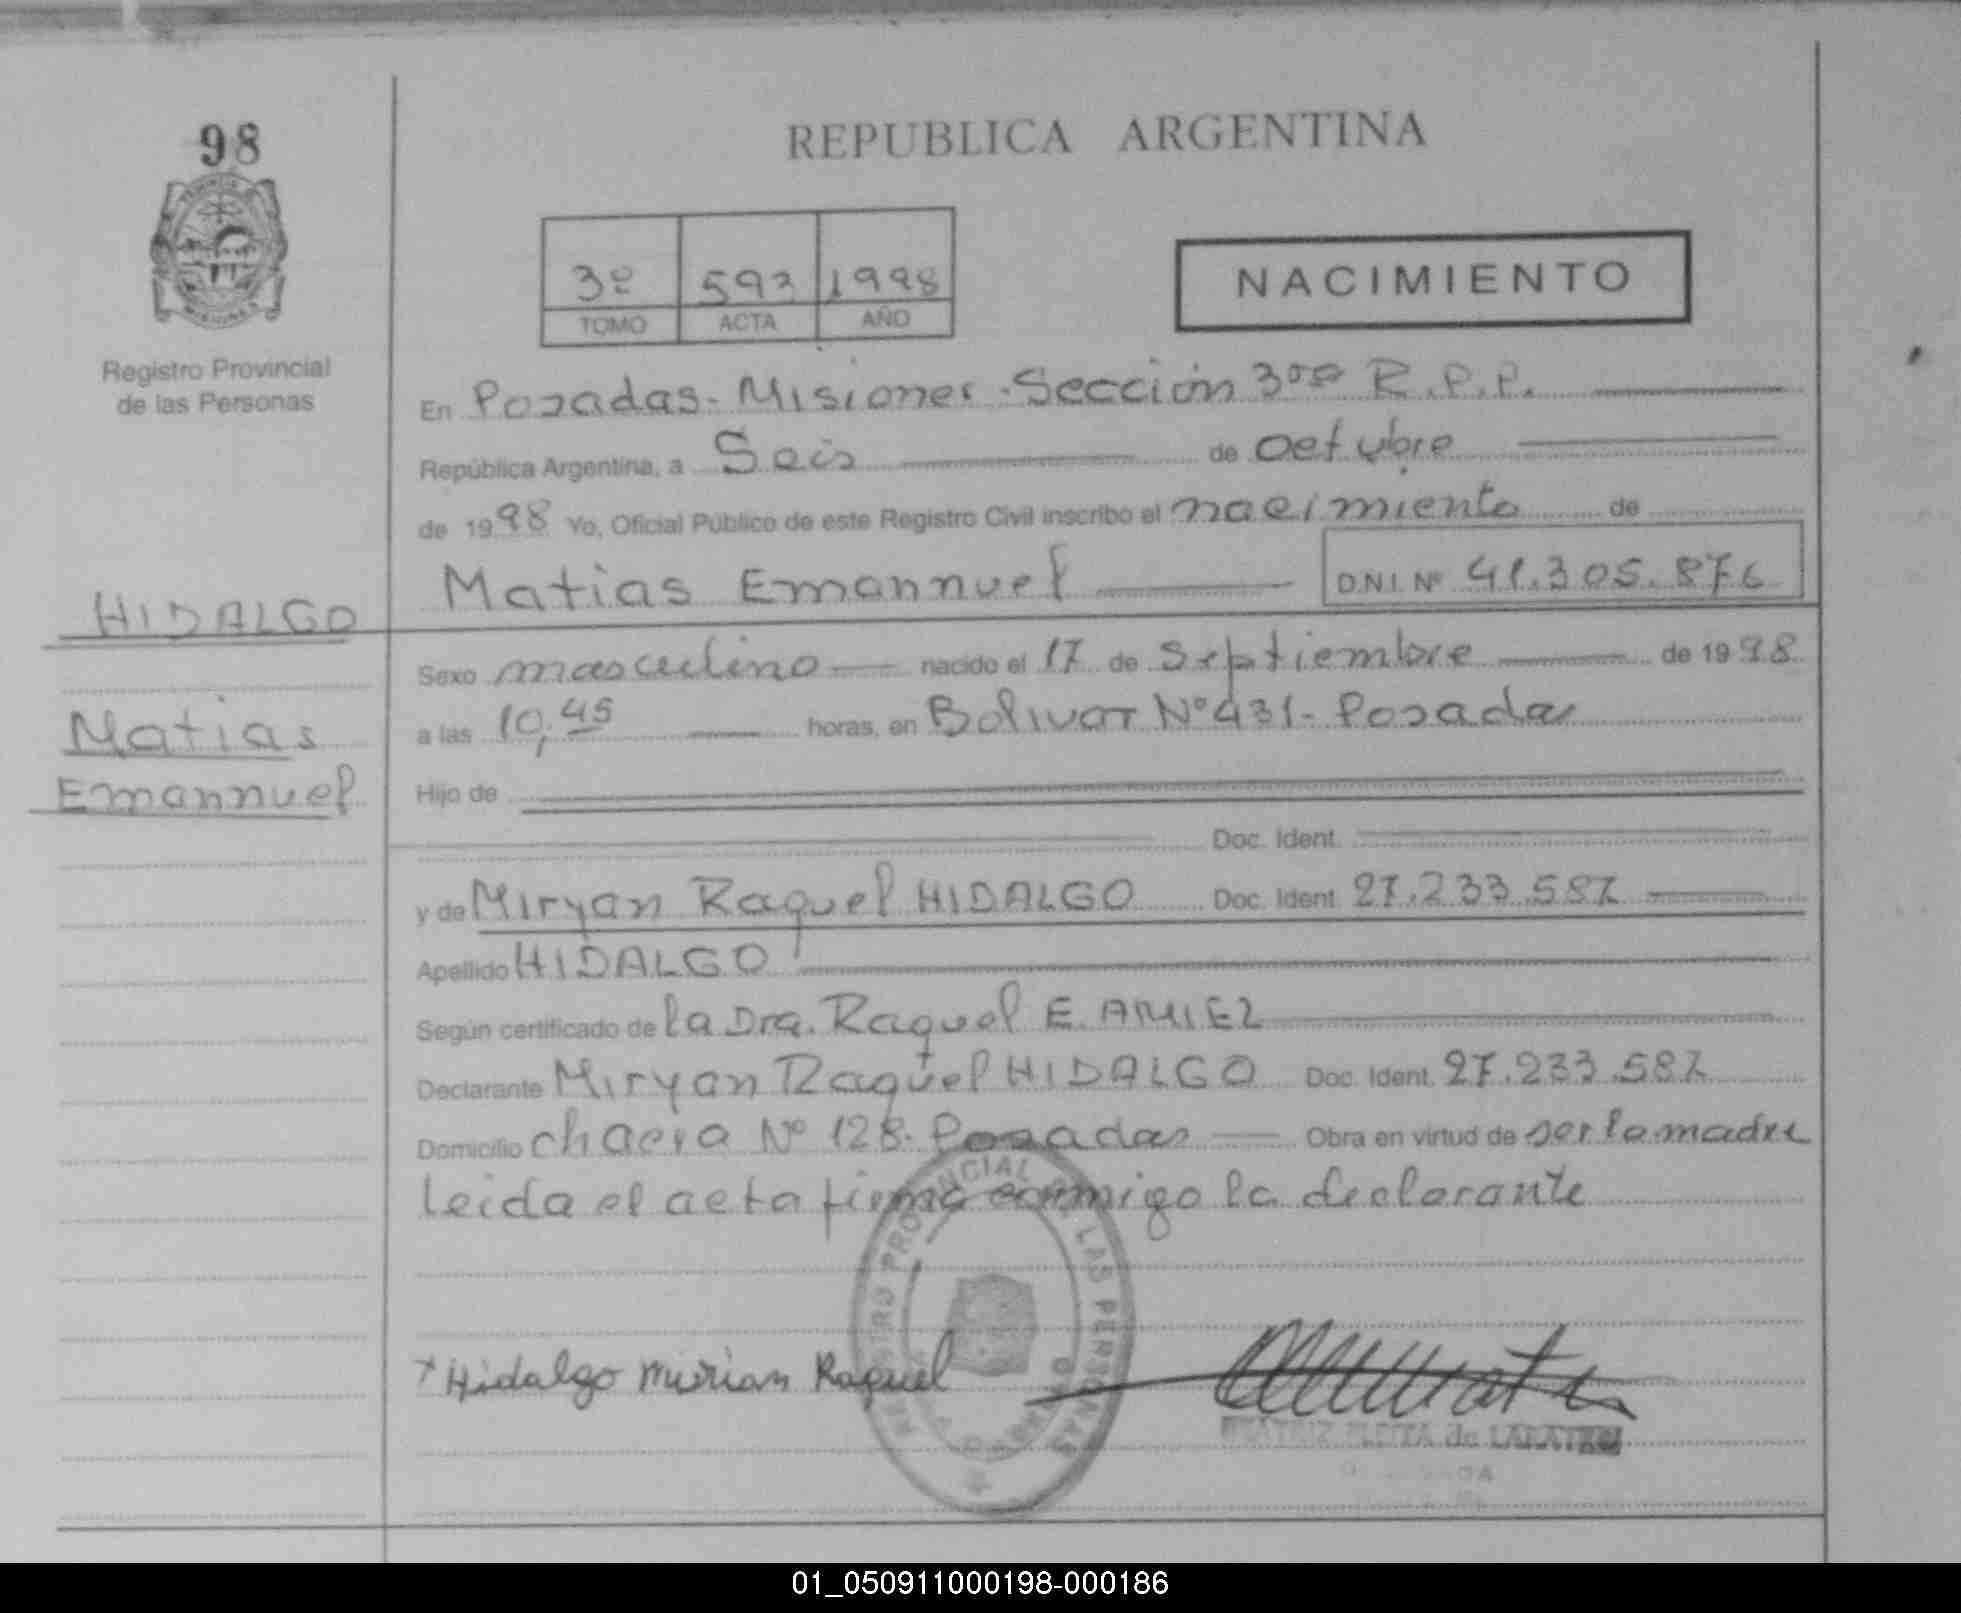 98
REPUBLICA ARGENTINA
3º 592 1998
TOMO ACTA AÑO
NACIMIENTO
Registro Provincial
de las Personas
En Posadas - Misiones - Sección 3era R.P.P.
República Argentina, a Seis de octubre
de 1998 Yo, Oficial Público de este Registro Civil inscribo el nacimiento de
Matias Emannuel D.N.I. Nº 41.305.876
HIDALGO
Matias
Emannuel
Sexo masculino nacido el 17 de septiembre de 1998
a las 10,45 horas, en Bolivar Nº 431 - Posadas
Hijo de
Doc. Ident.
y de Miryan Raquel HIDALGO Doc. Ident. 27.233.587
Apellido HIDALGO
Según certificado de la Dra. Raquel E. AMIEZ
Declarante Miryan Raquel HIDALGO Doc. Ident. 27.233.587
Domicilio chacra Nº 128. Posadas Obra en virtud de ser la madre
leida el acta firma conmigo la declarante
REGISTRO PROVINCIAL DE LAS PERSONAS
Hidalgo Mirian Raquel
01_050911000198-000186